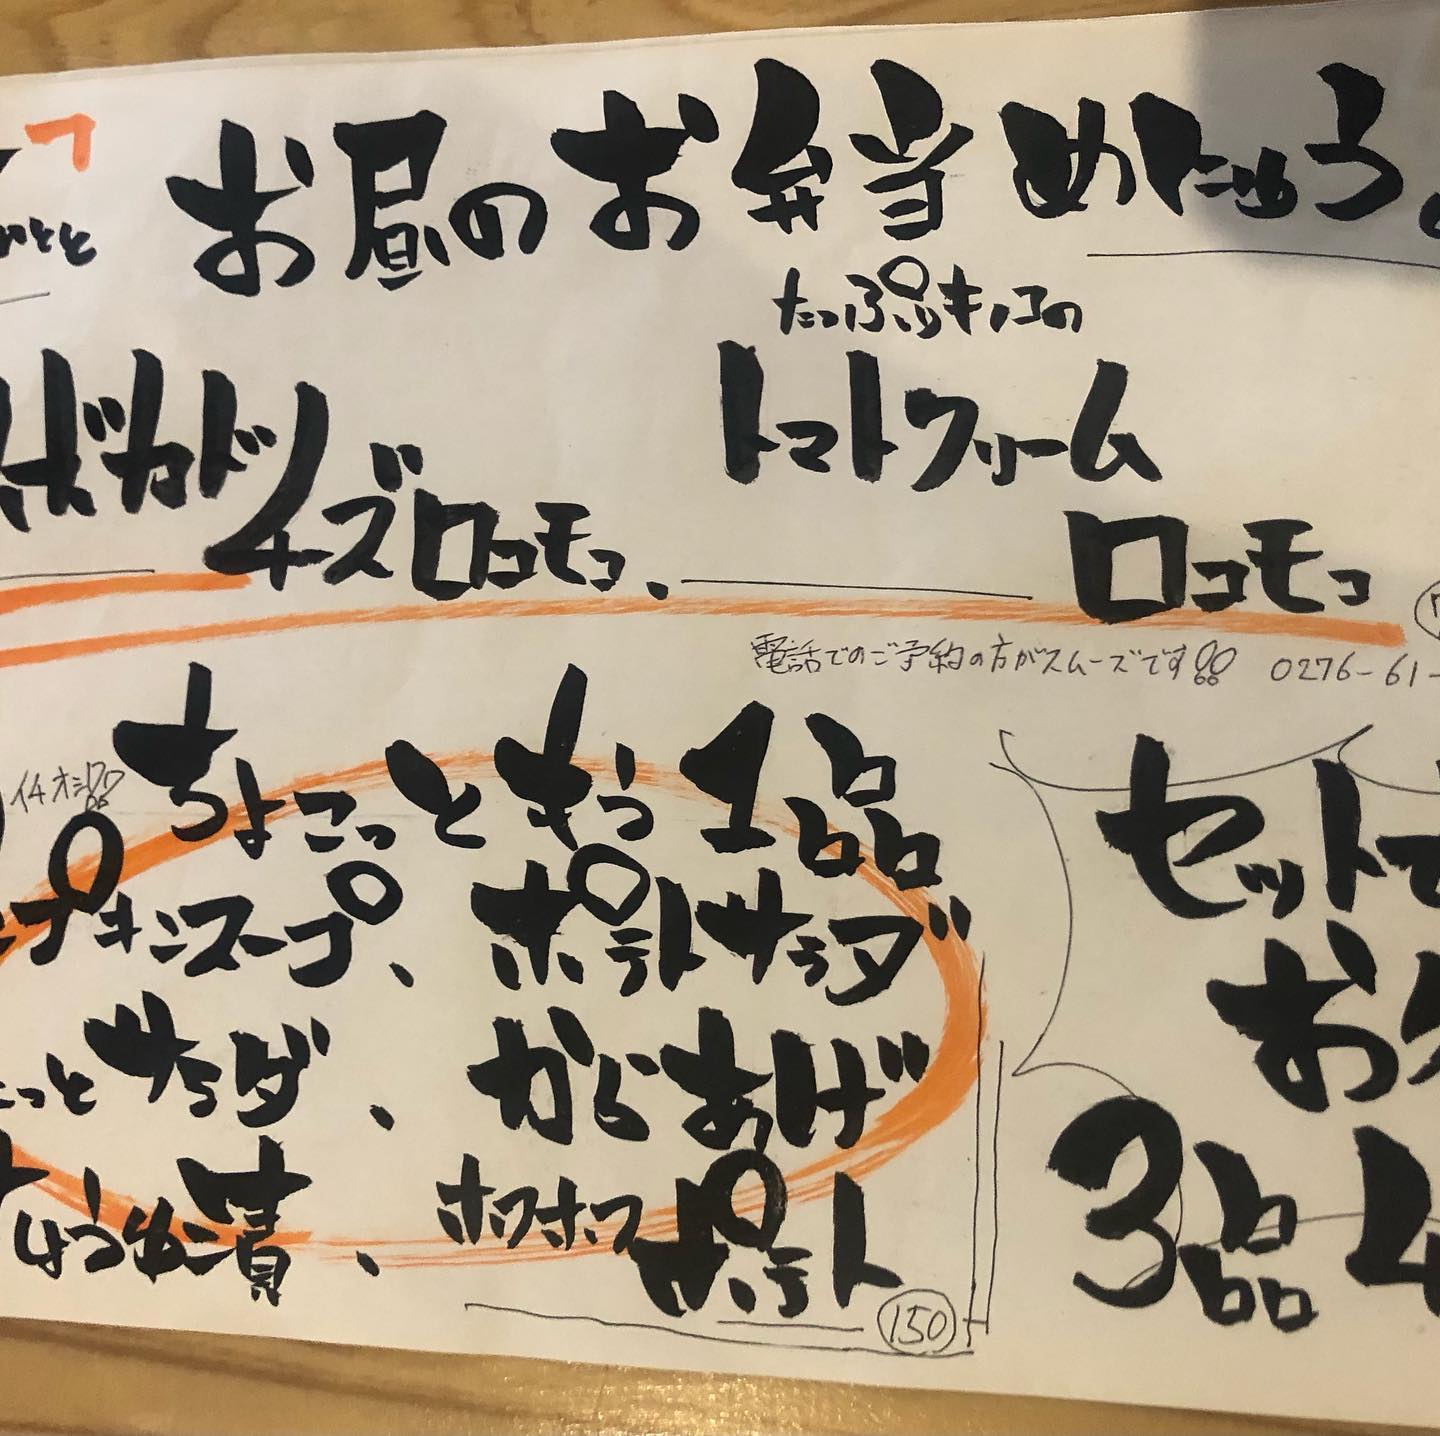 お昼のお弁当めにゅう。
たっぷりキノコの
トマトクリーム
ロコモコ
ボカド
チーズロコモコ、
電話でのご予約の方がスムーズです!! 0276-61-
イチオシ!!
ちょこっともう1品
プキンスープ、ポテトサラダ
っとサラダ、からあげ
きゅうり漬、ホワホワポテト
150
セットで
お
3品 4